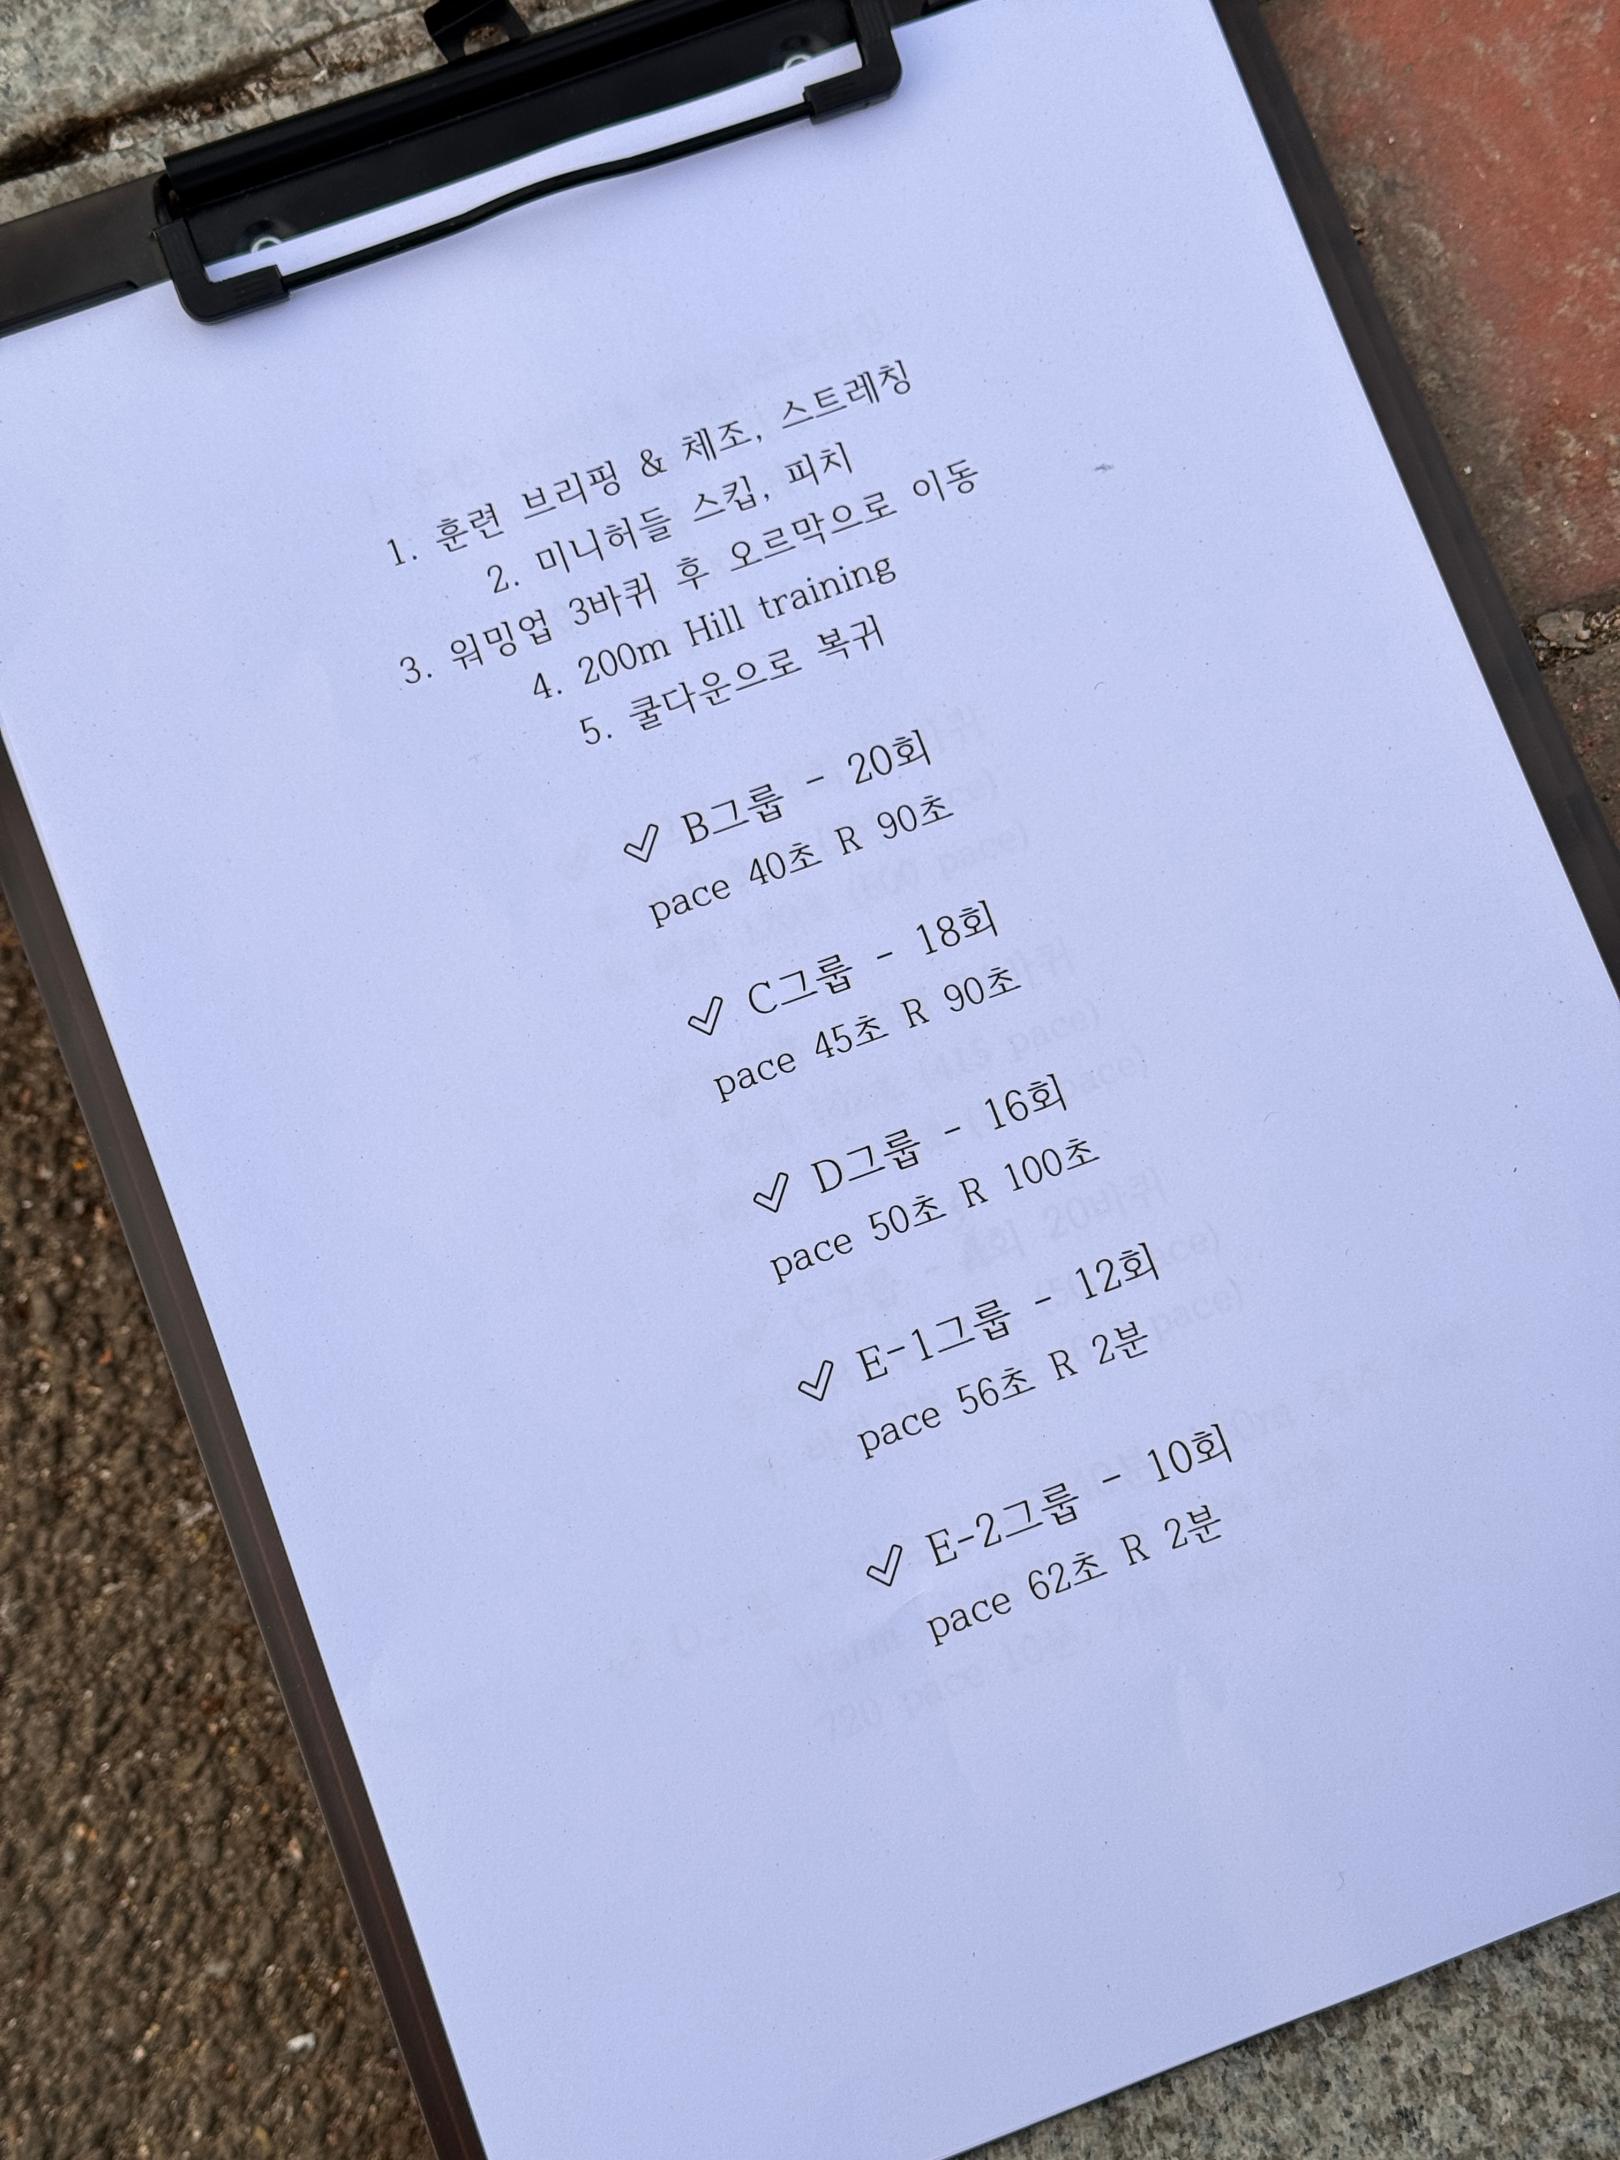 1. 훈련 브리핑 & 체조, 스트레칭
2. 미니허들 스킵, 피치
3. 워밍업 3바퀴 후 오르막으로 이동
4. 200m Hill training
5. 쿨다운으로 복귀
✓ B그룹 - 20회
pace 40초 R 90초
✓ C그룹 - 18회
pace 45초 R 90초
✓ D그룹 - 16회
pace 50초 R 100초
✓ E-1그룹 - 12회
pace 56초 R 2분
✓ E-2그룹 - 10회
pace 62초 R 2분